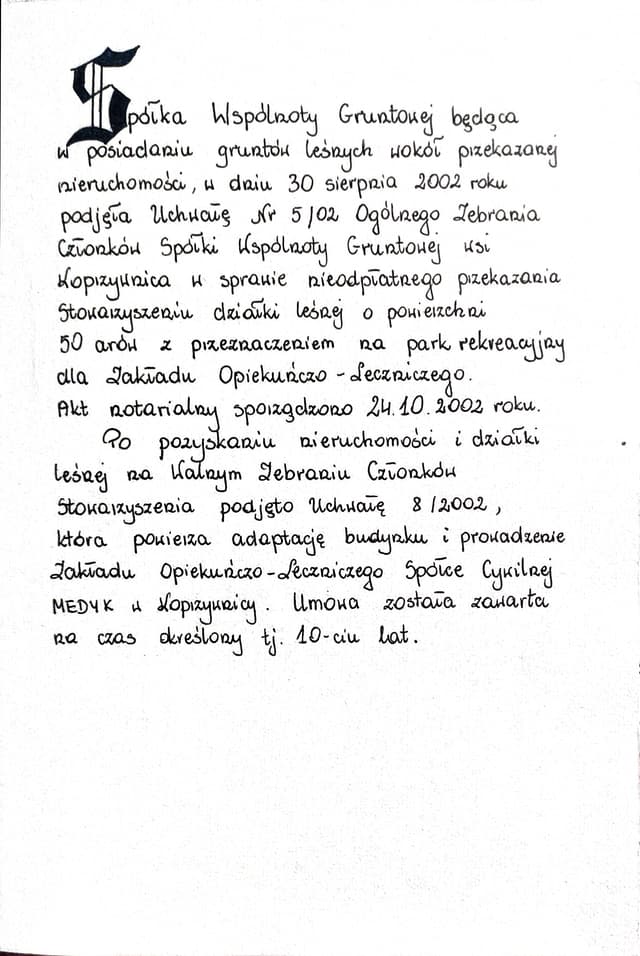 Spółka Wspólnoty Gruntowej będąca
w posiadaniu gruntów leśnych wokół przekazanej
nieruchomości, w dniu 30 sierpnia 2002 roku
podjęła Uchwałę Nr 5/02 Ogólnego Zebrania
Członków Spółki Wspólnoty Gruntowej wsi
Koprzywnica w sprawie nieodpłatnego przekazania
Stowarzyszeniu działki leśnej o powierzchni
50 arów z przeznaczeniem na park rekreacyjny
dla Zakładu Opiekuńczo-Leczniczego.
Akt notarialny sporządzono 24.10.2002 roku.
Po pozyskaniu nieruchomości i działki
leśnej na Walnym Zebraniu Członków
Stowarzyszenia podjęto Uchwałę 8/2002,
która powierza adaptację budynku i prowadzenie
Zakładu Opiekuńczo-Leczniczego Spółce Cywilnej
MEDYK w Koprzywnicy. Umowa została zawarta
na czas określony tj. 10-ciu lat.